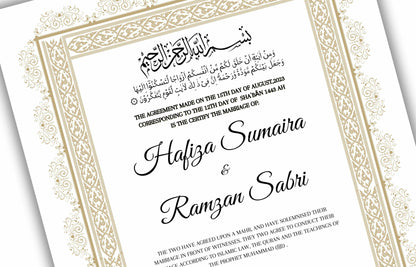 بسم الله الرحمن الرحيم
وَمِنْ آيَاتِهِ أَنْ خَلَقَ لَكُمْ مِنْ أَنْفُسِكُمْ أَزْوَاجًا لِتَسْكُنُوا إِلَيْهَا
وَجَعَلَ بَيْنَكُمْ مَوَدَّةً وَرَحْمَةً إِنَّ فِي ذَلِكَ لَآيَاتٍ لِقَوْمٍ يَتَفَكَّرُونَ
THE AGREEMENT MADE ON THE 15TH DAY OF AUGUST,2023
CORRESPONDING TO THE 12TH DAY OF SHA'BĀN 1443 AH
IS THE CERTIFY THE MARRIAGE OF:
Hafiza Sumaira
&
Ramzan Sabri
THE TWO HAVE AGREED UPON A MAHR, AND HAVE SOLEMNISED THEIR
MARRIAGE IN FRONT OF WITNESSES. THEY TWO AGREE TO CONDUCT THEIR
ACCORDING TO ISLAMIC LAW, THE QURAN AND THE TEACHINGS OF
THE PROPHET MUHAMMAD ﷺ .